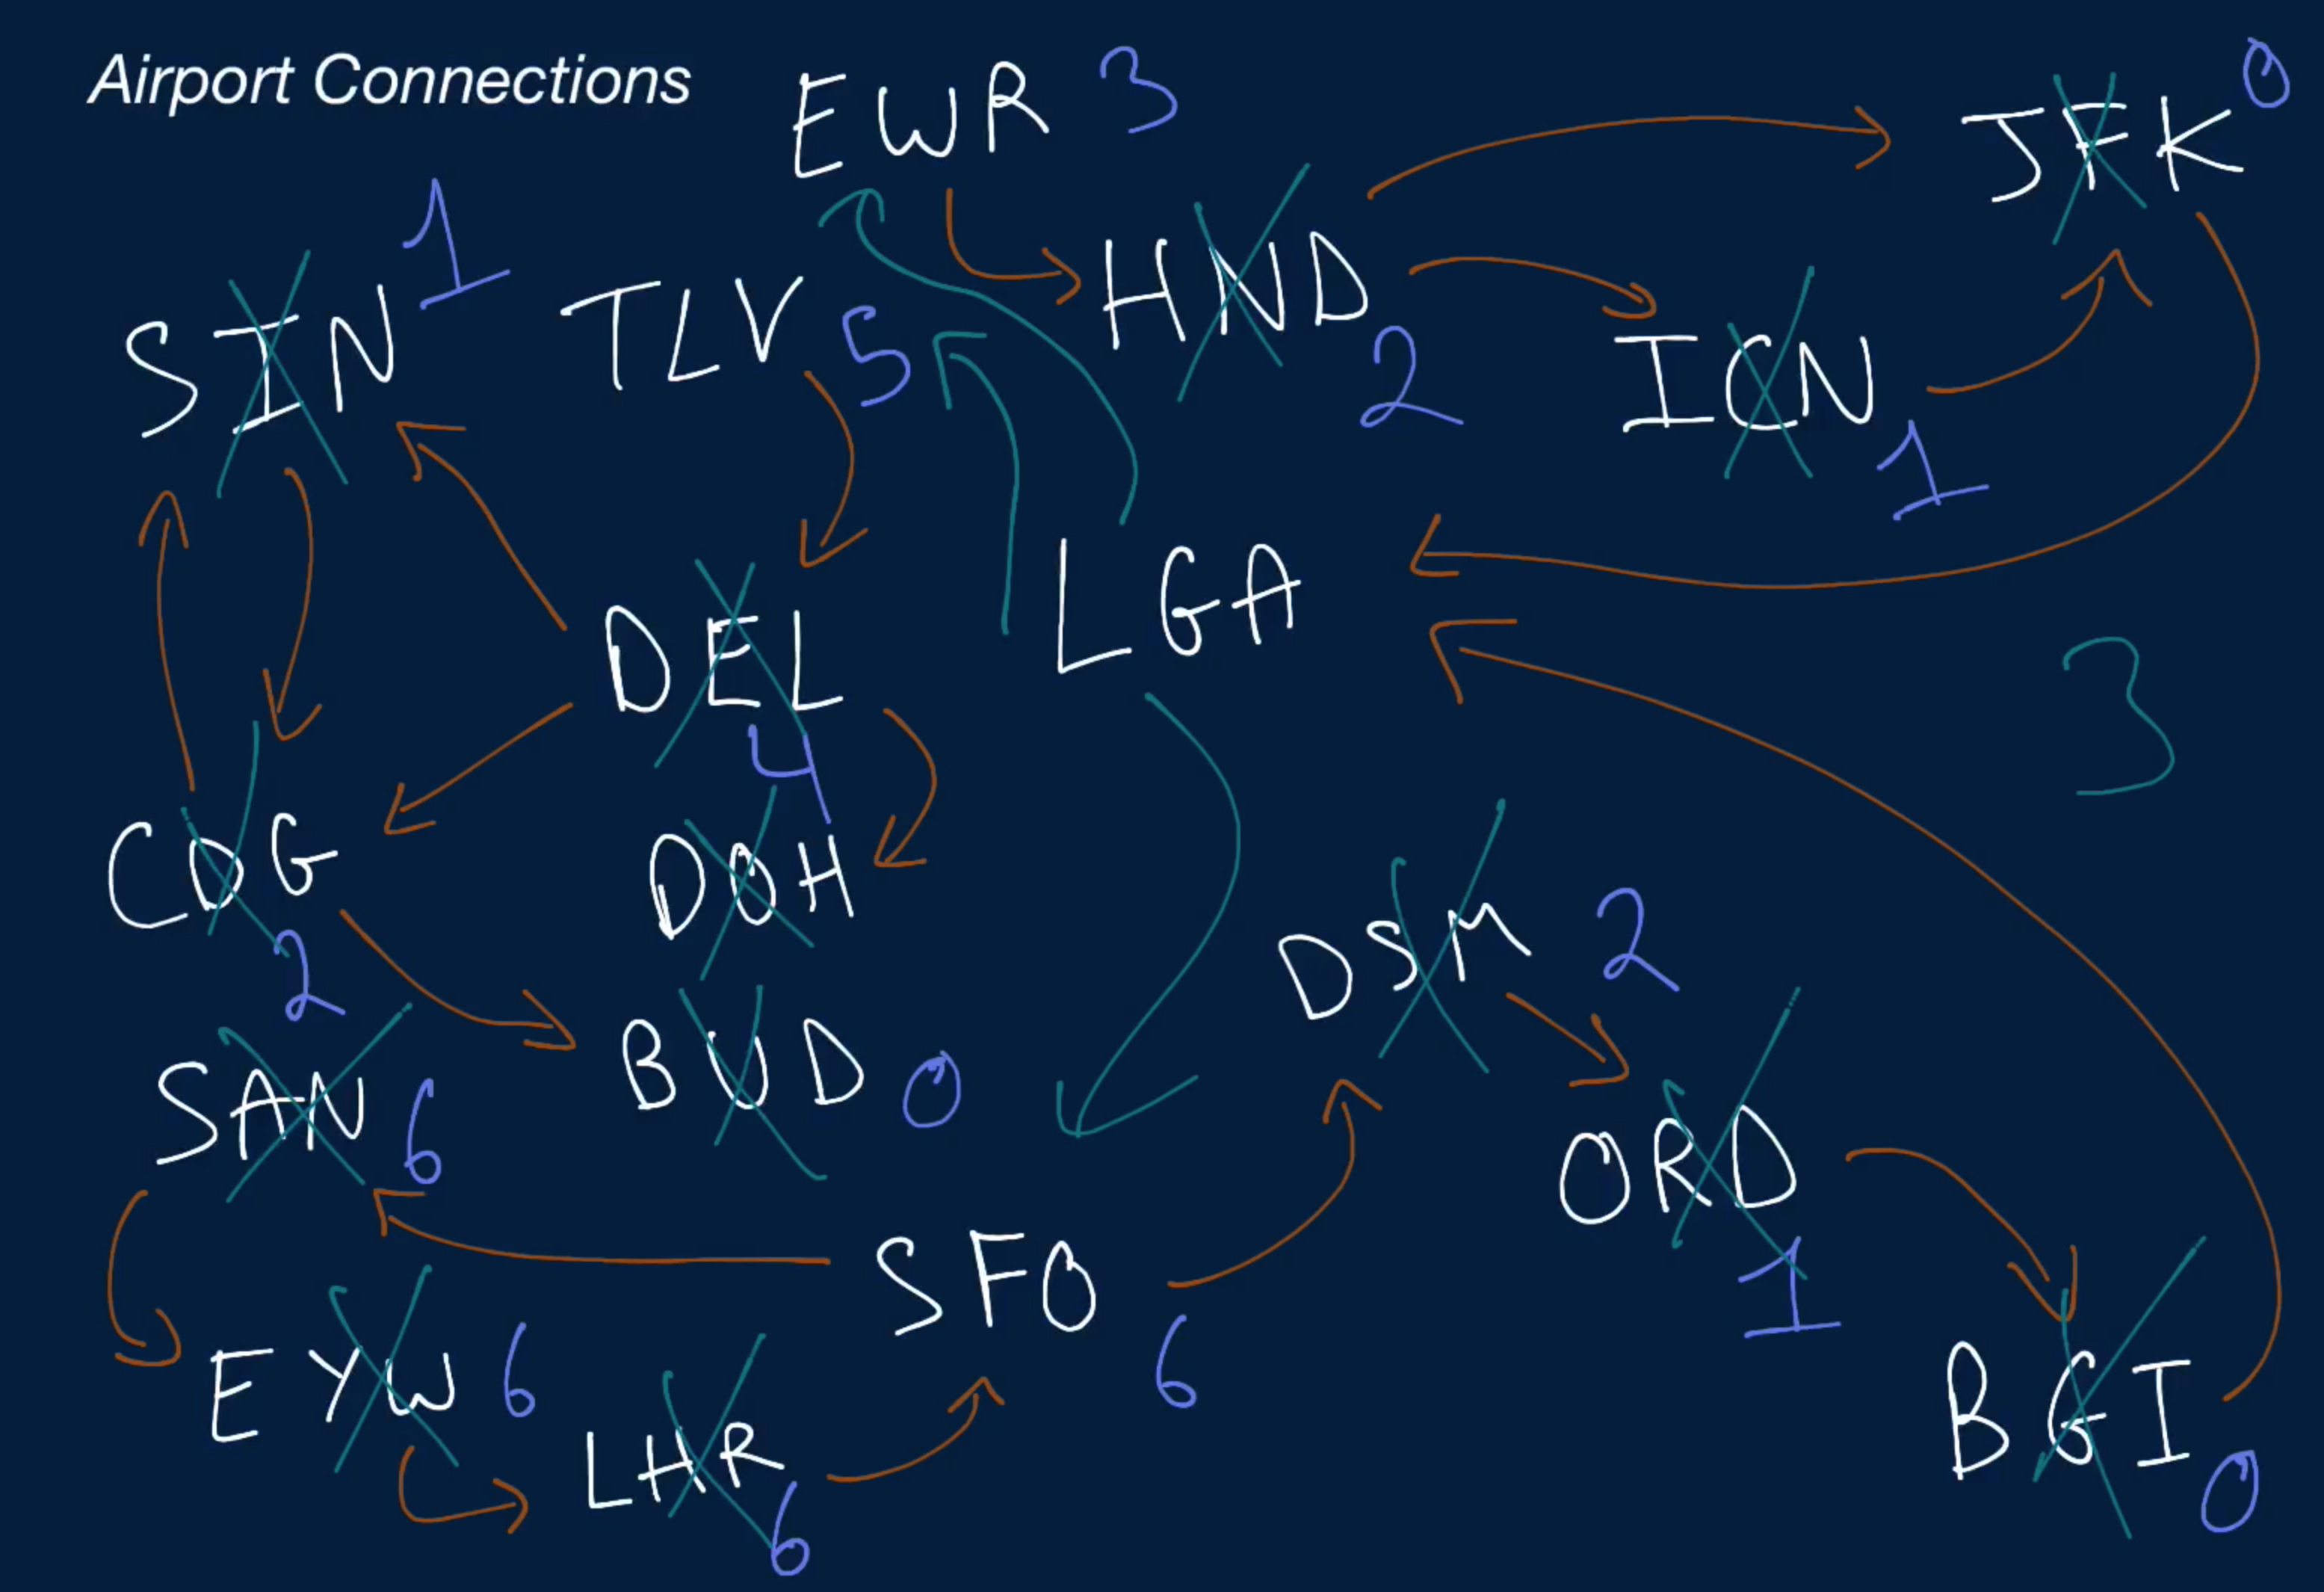 Airport Connections
EWR 3
JFK 0
SIN 1
TLV 5
HND 2
ICN 1
DEL 4
LGA
3
CDG 2
DOH
DSM 2
SAN 6
BUD 0
ORD 1
SFO 6
EYW 6
LHR 6
BGI 0